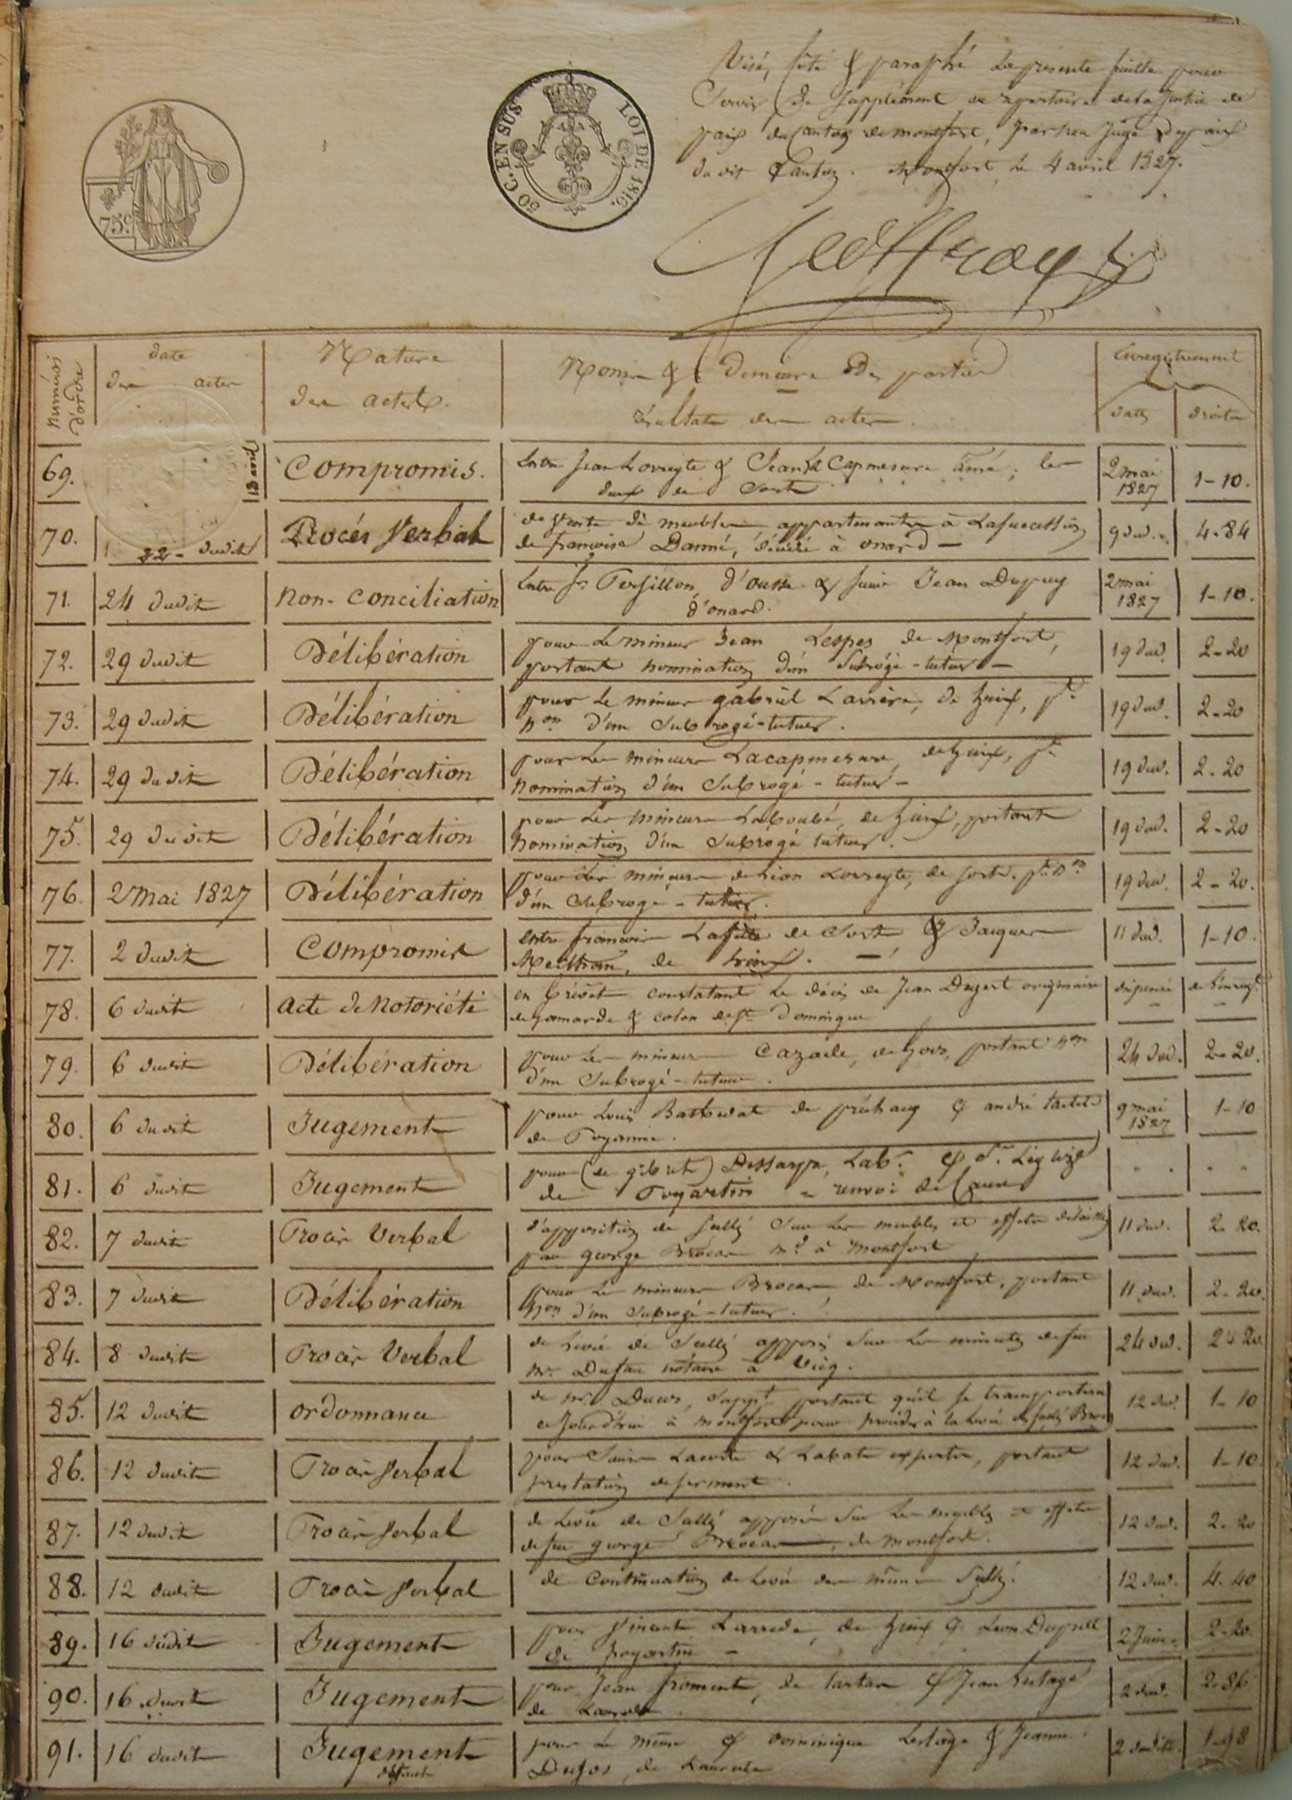 75c.
50 C. EN SUS LOI DE 1816.
Visé, coté & paraphé la présente feuille pour
servir de supplément au répertoire de la justice de
paix du canton de montfort, par nous Juge de paix
du dit Canton. Montfort, le 4 avril 1827.
Geoffroy
Numéros d'ordre
date des actes
Nature des actes.
Noms & demeure des parties
résultats des actes.
Enregistrement
dates
droits
69. 13 avril Compromis. Entre Jean Lorreyte & Jean Capmesure ainé, les 2 mai 1-10.
deux de Sort 1827
70. 22 dudit Procés Verbal de vente de meubles appartenants à la succession 9 dud. 4-84
de françoise Danné, décédée à onard —
71. 24 dudit Non-Conciliation Entre Persillon, d'ousse & Jean Dupuy 2 mai 1-10.
d'onard. 1827
72. 29 dudit Délibération pour le mineur Jean Lespes de Montfort, 19 dud. 2-20
portant nomination d'un Subrogé-tuteur —
73. 29 dudit Délibération pour le mineur gabriel Larrère, de 19 dud. 2-20
non d'un Subrogé-tuteur.
74. 29 dudit Délibération pour les mineurs Lacapmesure, 19 dud. 2-20
nomination d'un Subrogé-tuteur —
75. 29 dudit Délibération pour les mineurs Laboubé, portant 19 dud. 2-20
nomination d'un Subrogé tuteur.
76. 2 Mai 1827 Délibération pour les mineurs de Lorreyte, de Sort. pt. non 19 dud. 2-20.
d'un Subrogé-tuteur.
77. 2 dudit Compromis entre françois Lafitte de Sort & Jacques 11 dud. 1-10.
de
78. 6 dudit Acte de Notoriété en brevet constatant le décès de Jean originaire dispensé de l'enregt.
de gamarde & colon de St. Domingue
79. 6 dudit Délibération pour les mineurs Cazade, portant non 24 dud. 2-20.
d'un Subrogé-tuteur.
80. 6 dudit Jugement pour Louis de préchacq & andré 9 mai 1-10
de Poyanne. 1827
81. 6 dudit Jugement pour Dessarps, Labr. & - - - -
de Poyartin = renvoi de Cause
82. 7 dudit Procès Verbal d'apposition de scellés sur les meubles et effets délaissés 11 dud. 2-20.
par george Brocas md. à Montfort
83. 7 dudit Délibération pour les mineurs Brocas, de Montfort, portant 11 dud. 2-20.
non d'un Subrogé-tuteur.
84. 8 dudit Procès Verbal de levée de scellés apposés sur les minutes de feu 24 dud. 2-20
Mr. Dufau notaire à Vicq.
85. 12 dudit ordonnance de Mr. Ducos, Suppt. portant qu'il se transportera 12 dud. 1-10
ce jourd'hui à montfort pour procéder à la levée de scellés Brocas
86. 12 dudit Procès Verbal pour Lacoste & Labat experts, portant 12 dud. 1-10.
prestation de serment.
87. 12 dudit Procès Verbal de levée de scellés apposés sur les meubles et effets 12 dud. 2-20
de feu george Brocas, de montfort.
88. 12 dudit Procès Verbal de Continuation de levée des mêmes scellés. 12 dud. 4-40
89. 16 dudit Jugement pour Vincent Larrede, de & Leon 2 Juin 2-20
de poyartin —
90. 16 dudit Jugement pour Jean froment, de tartas & Jean Lestage 2 dud. 2-86
de Laurede
91. 16 dudit Jugement pour le même & Dominique Lestage & Jeanne 2 dudit 1-98
défaut Dufos, de Laurede